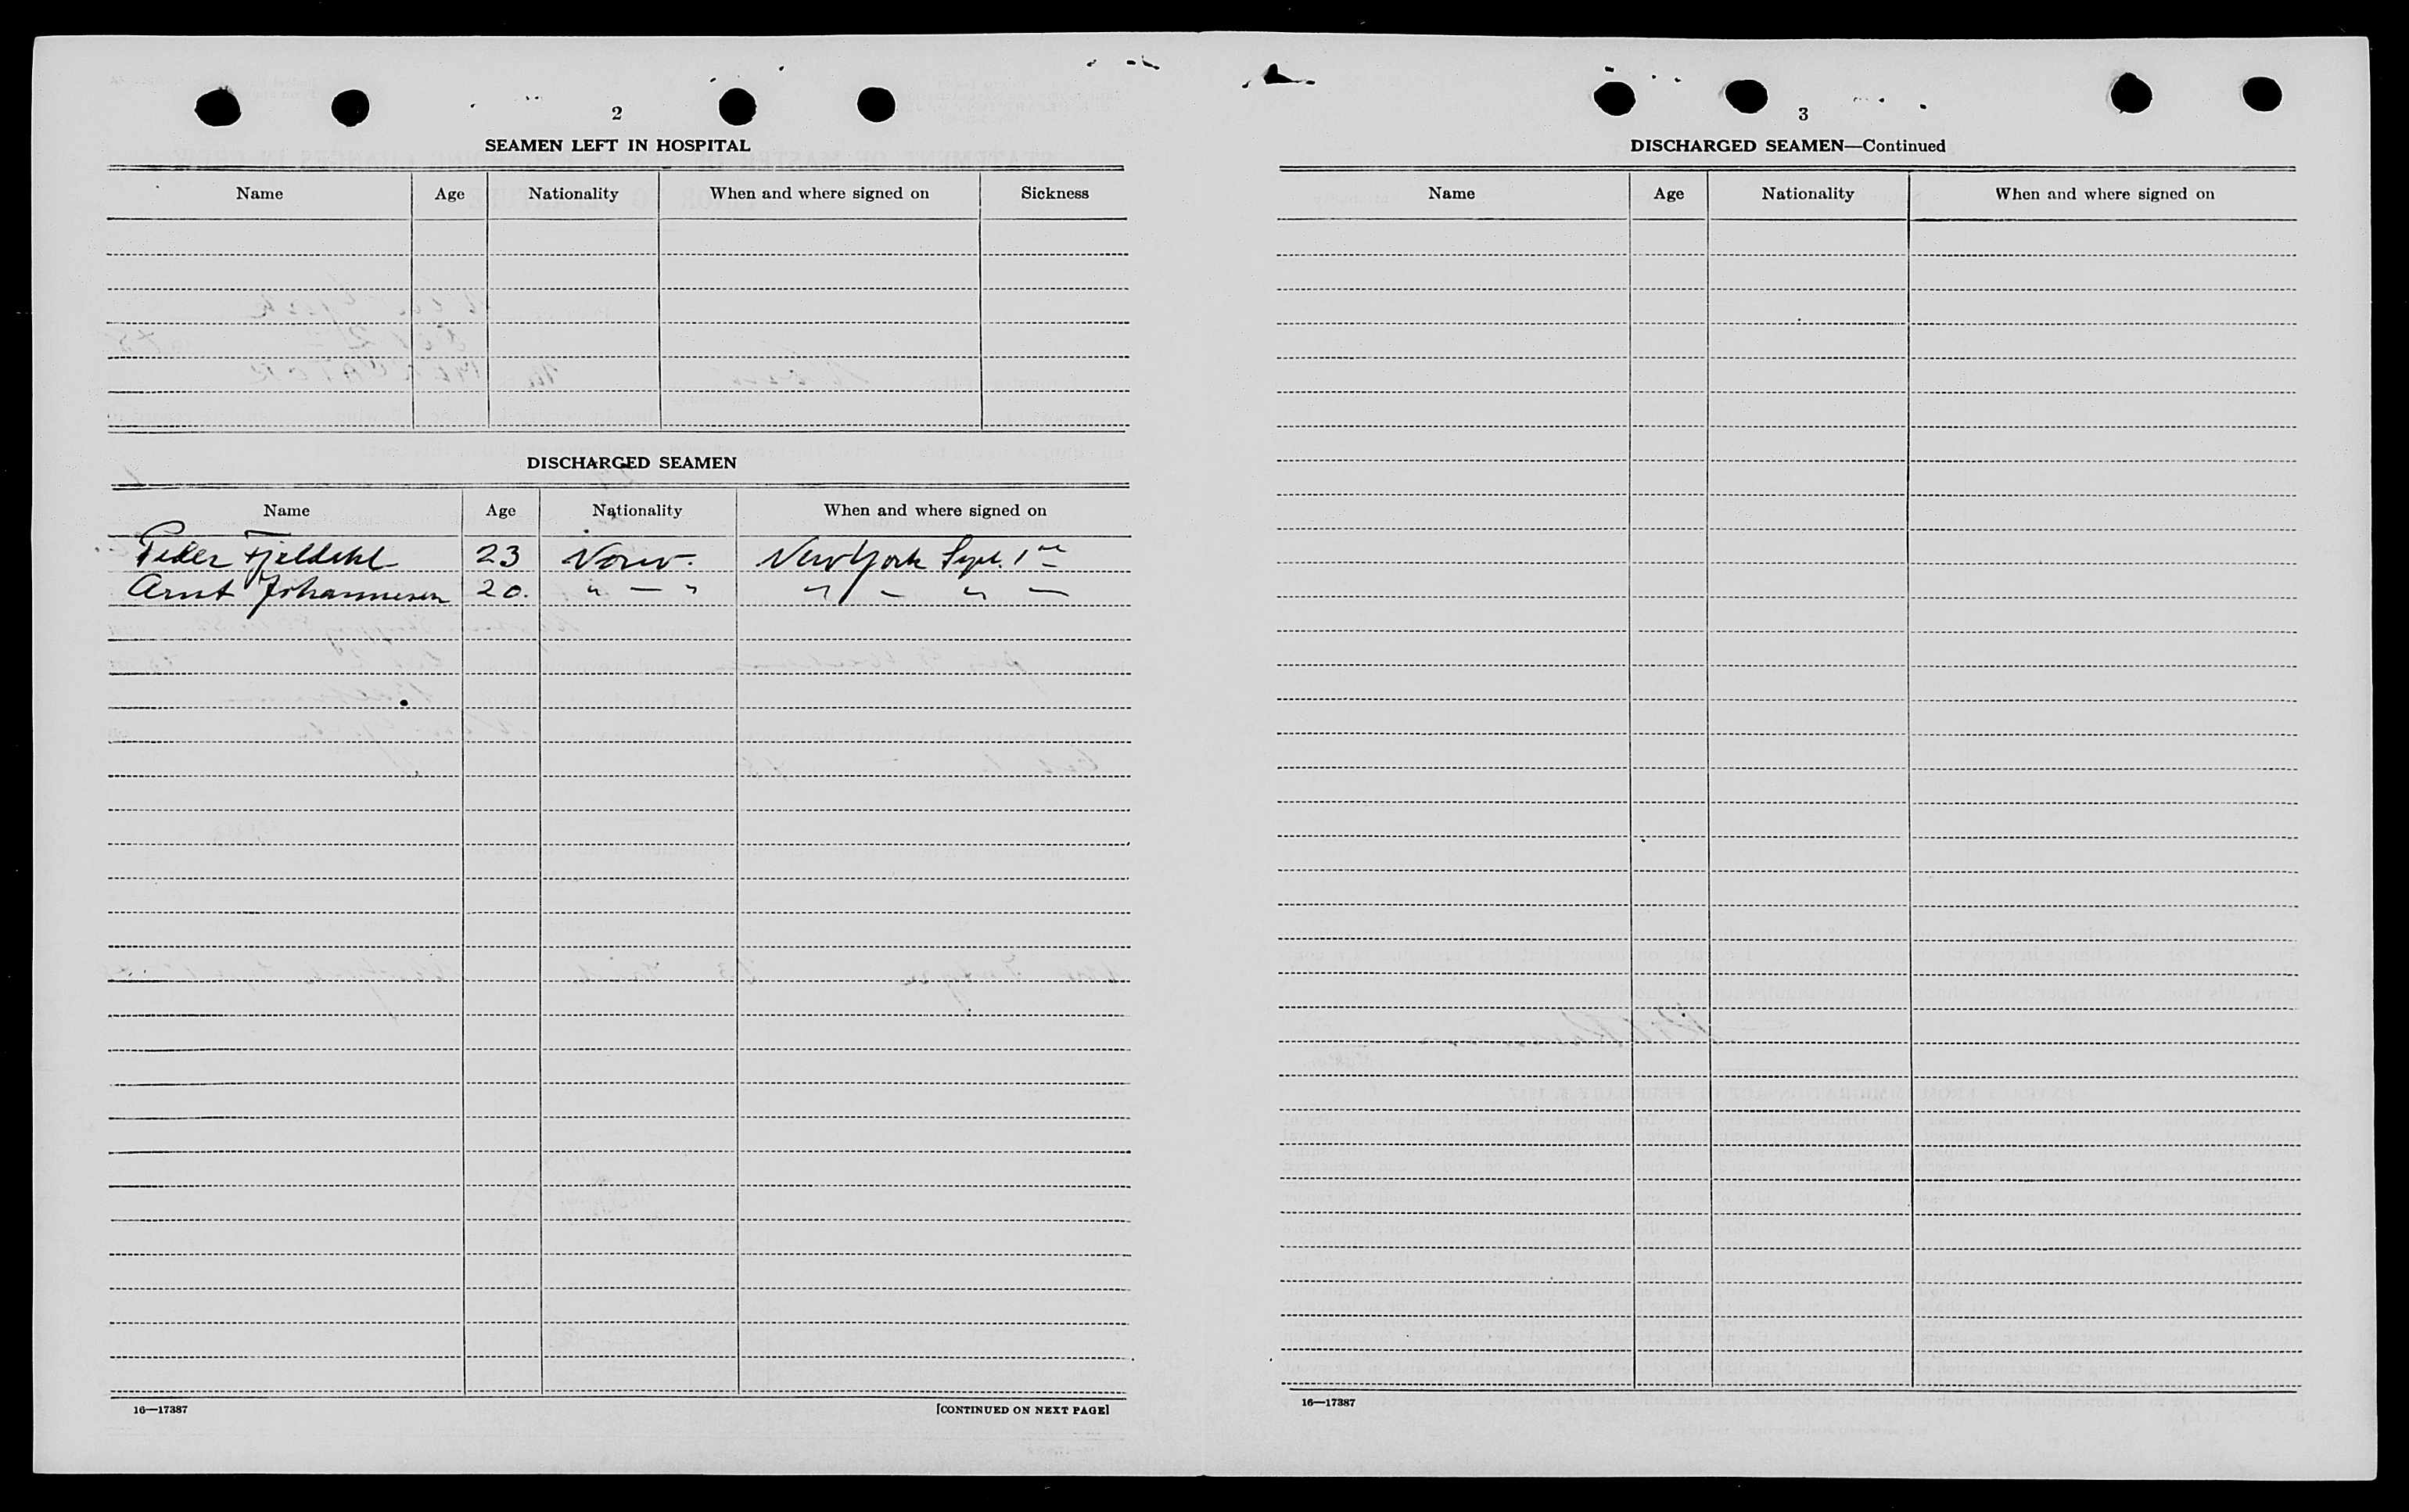 2
SEAMEN LEFT IN HOSPITAL
Name Age Nationality When and where signed on Sickness
DISCHARGED SEAMEN
Name Age Nationality When and where signed on
Peder Fjeldahl 23 Norw. New York Sept. 1
Arnt Johannesen 20. " — " " — " —
16—17387 [CONTINUED ON NEXT PAGE]
3
DISCHARGED SEAMEN—Continued
Name Age Nationality When and where signed on
16—17387